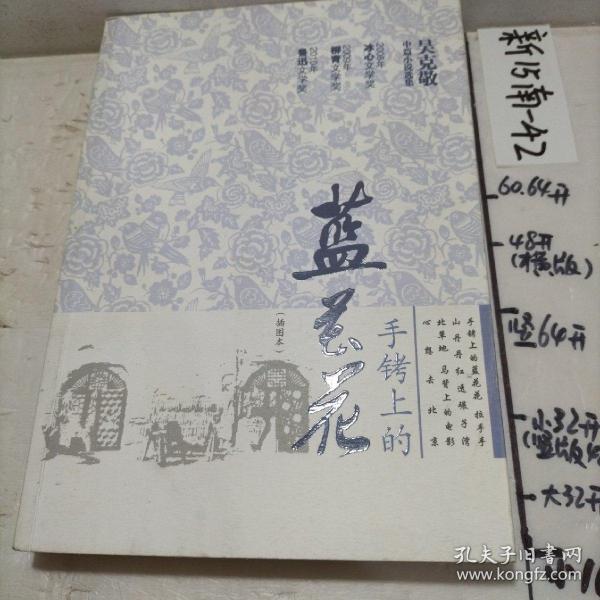 吴克敬
中篇小说选集
冰心文学奖
柳青文学奖
2010年
鲁迅文学奖
手铐上的
蓝花花
(插图本)
手铐上的蓝花花 拉手手
山丹丹红 碾子湾
北草地 马背上的电影
心想去北京
新15南-42
60.64开
48开
(横版)
竖64开
小32开
(竖版
大32开
孔夫子旧书网
www.kongfz.com